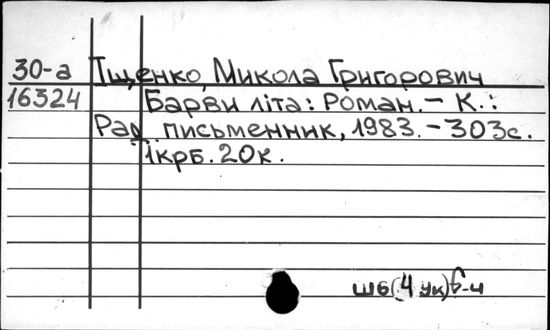 30-а Іщенко, Микола Григорович
16324 Барви літа: Роман. – К.:
Рад. письменник, 1983. – 303с.
1крб. 20к.
Ш6(4Ук)6-4